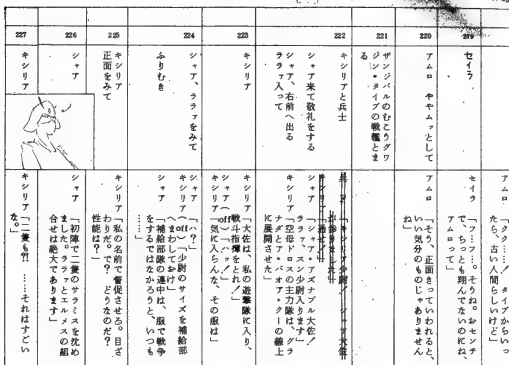 219
セイラ
アムロ「クク……！ タイプからいっ
たら、古い人間らしいけど」
セイラ「フ…フ…。そうね。おセンチ
で、ちっとも翔んでないのにね、
アムロって」
220
アムロ ややムッとして
アムロ「そう、正面きっていわれると、
いい気分のものじゃありません
ね」
221
ザンジバルのむこうグワ
ジン・タイプの戦艦とま
る
222
キシリアと兵士
シャア来て敬礼をする
シャア、右前へ出る
ララァ入って
シャア「シャア・アズナブル大佐！
ララァ、スン少尉入ります」
キシリア「空母ドロスの主力隊は、グラ
ナダとア・バオア・クーの線上
に展開させた」
223
キシリア
キシリア「大佐は、私の遊撃隊に入り、
戦斗指揮をとれ！」
シャア(off)「ハッ！」
キシリア「気に入らんな、その服は」
224
シャア、ララァをみて
ふりむき
シャア「ハ？」
キシリア(off)「少尉のサイズを補給部
へまわしておけ」
シャア「補給部隊の連中は、服で戦争
をするではなかろうと、いつも
……」
225
キシリア
正面をみて
キシリア「私の名前で督促させろ。目ざ
わりだ。で？ どうなのだ？
性能は？」
226
シャア
シャア「初陣で二隻のサラミスを沈め
ました。ララァとエルメスの組
合せは絶大であります」
227
キシリア
キシリア「二隻も?! ……それはすごい
な。」